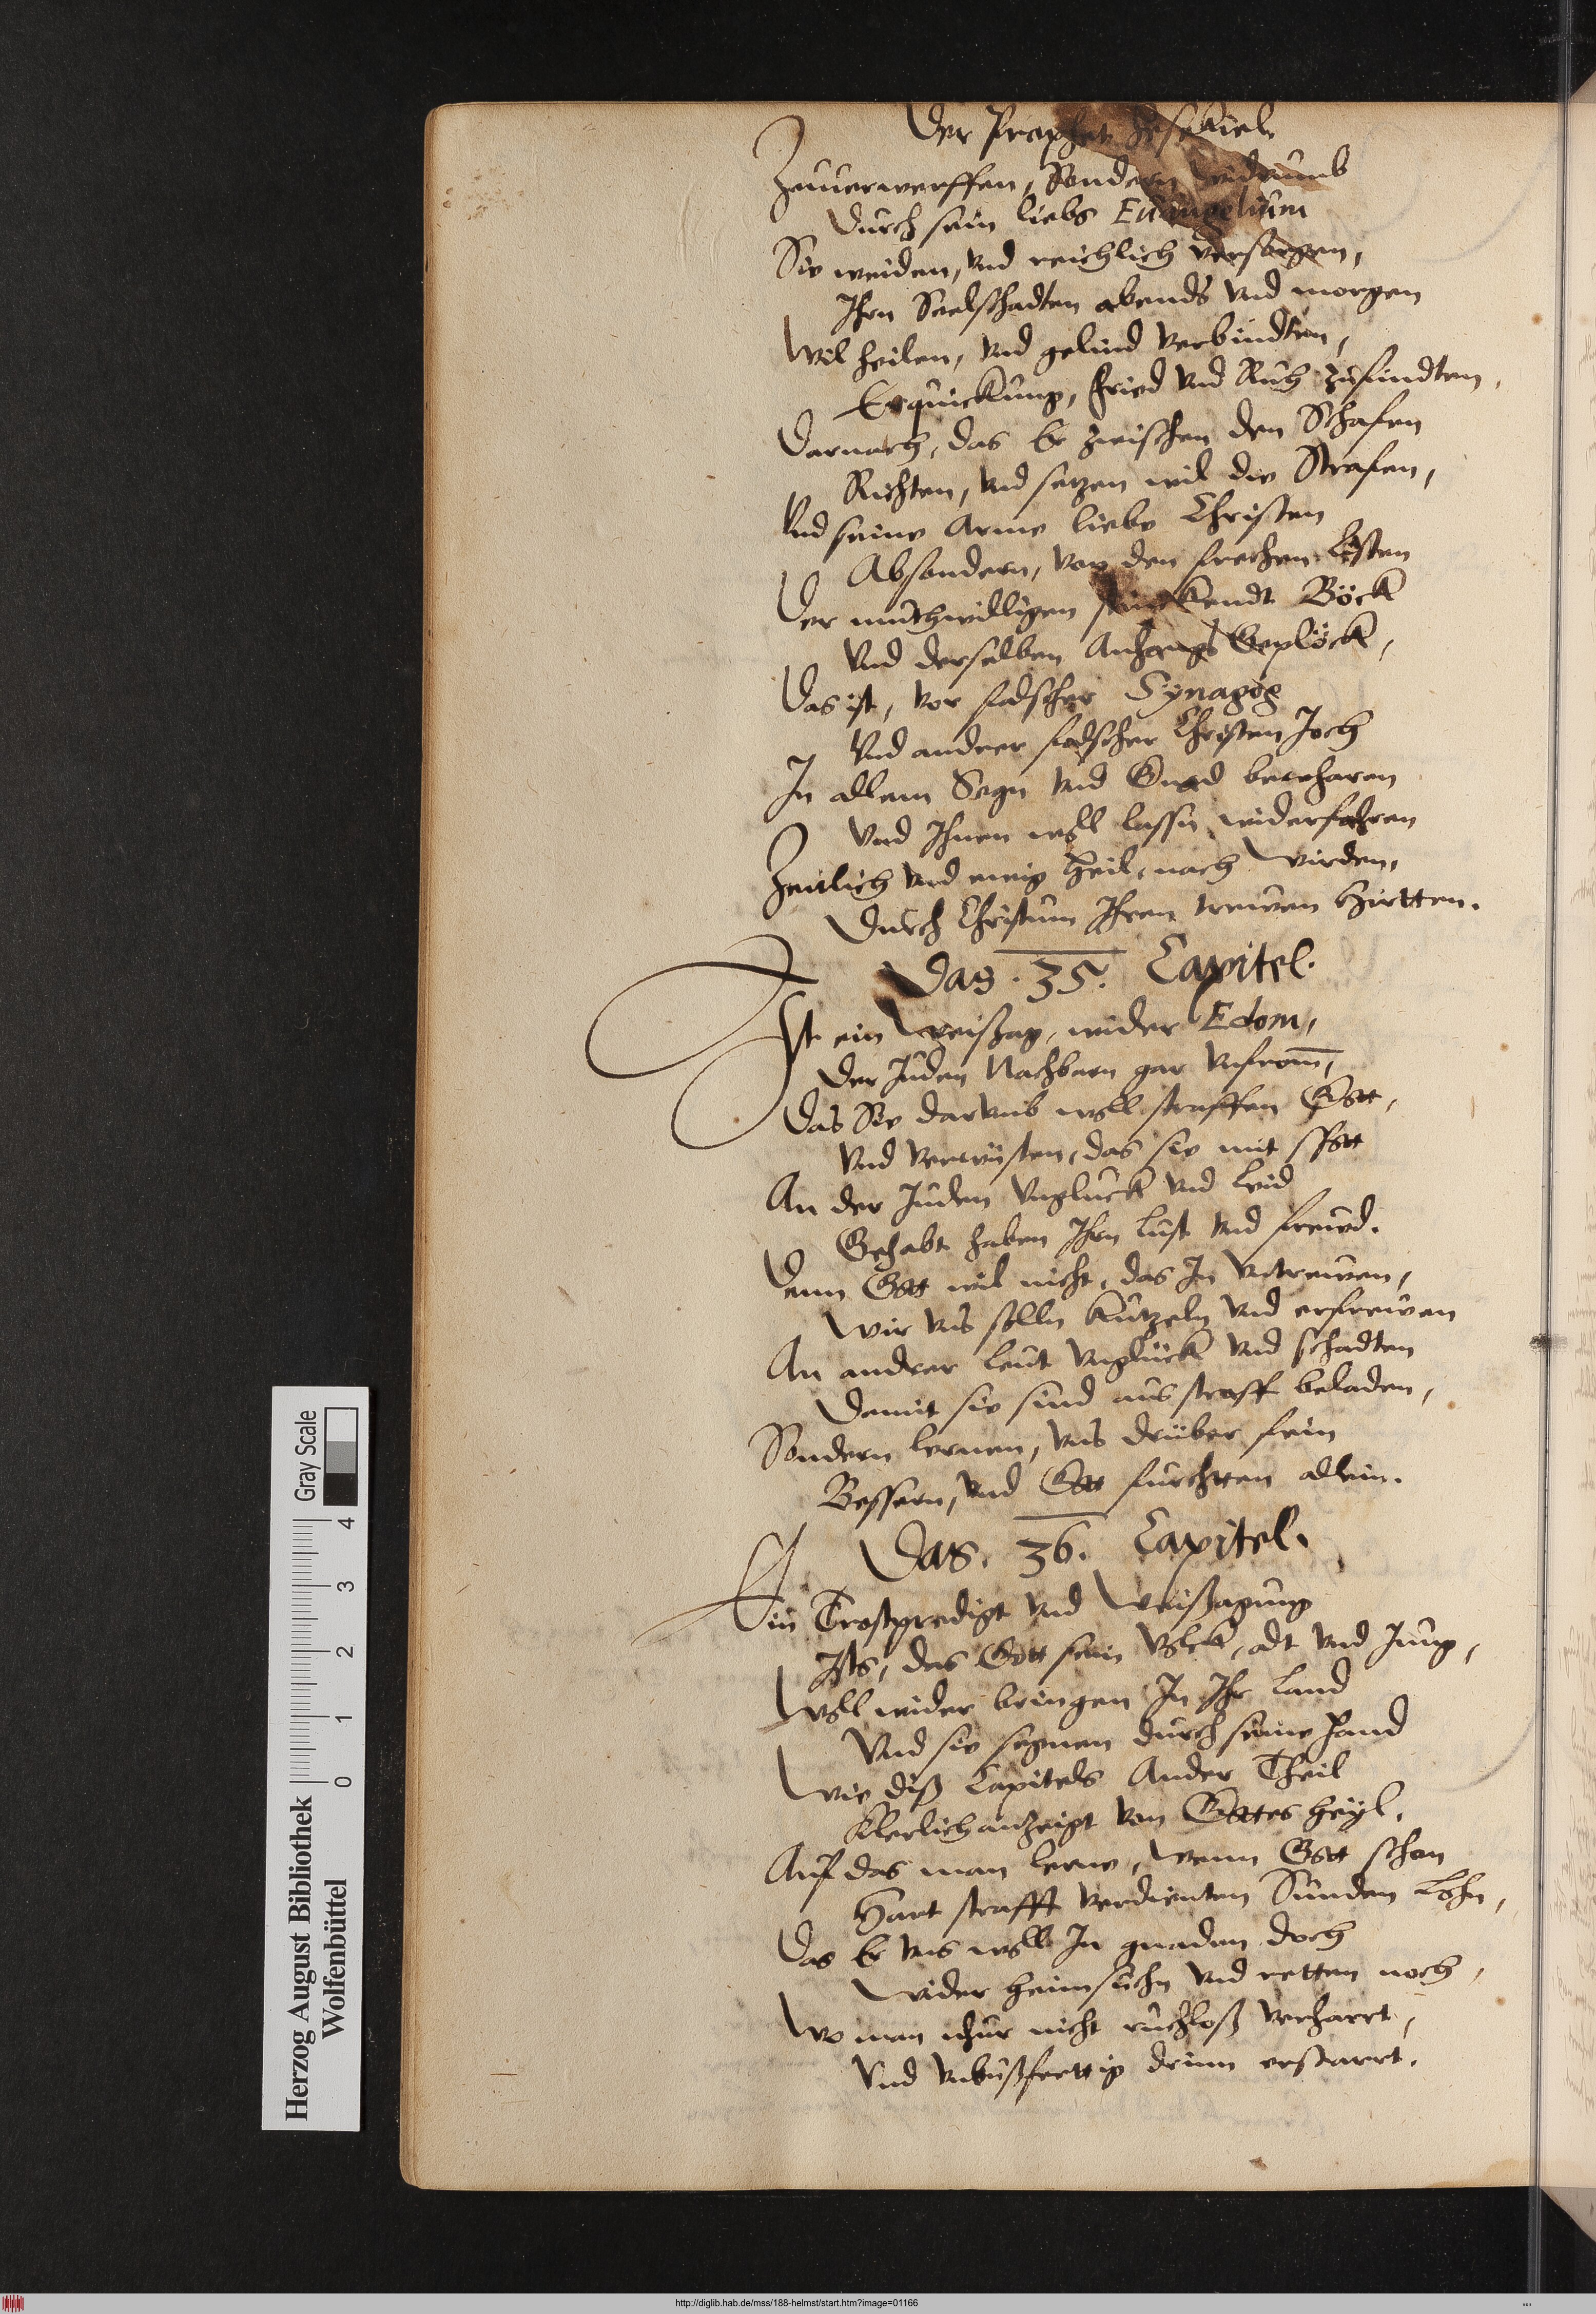 Der Prophet Hesekiel
Zuuerwerffen, Sonder widrumb
Durch sein liebs Euangelium
Sie weiden, vnd reichlich versorgen,
Ihrn Seelschadten abends vnd morgen
Wil heilen, vnd gelind verbindten,
Erquickung, fried vnd Ruh zufindten,
Darnach, das Er zwischen den Schafen
Richten, vnd setzen wil die Strafen,
Vnd seine Arme liebe Christen
Absondern, von den frechen Listen
Der muthwilligen stinckendt Böck
Vnd derselben Anhangs Geplöck,
Das ist, vor falscher Synagog
Vnd andrer falscher Christen Joch
In allem Segn vnd Gnad bewharen
Vnd Ihnen woll lassn widerfahren
Zeitlich vnd ewig Heil, nach wirden,
Durch Christum Ihren trewen Hirtten.
Das. 35. Capitel.
Ist ein Weissag, wider Edom,
Der Juden Nachbern gar vnfrom̄,
Das Sie darumb woll straffen Gott,
Vnd verwüsten, das sie mit spott
An der Juden Vngluck vnd Leid
Gehabt haben Ihrn lust vnd freud.
Denn Gott wil nicht, das In vntrewen,
Wir vns solln kützeln vnd erfrewen
An andrer leut vnglück vnd schadten
Damit sie sind aus straff beladen,
Sondern lernen, vns drüber fein
Bessern, vnd Gott furchtten allein.
Das. 36. Capitel.
Ein Trostpredigt vnd Weissagung
Ists, das Gott sein Volck, alt vnd Jung,
Woll wider bringen In Ihr Land
Vnd sie segnen durch seine Hand
Wie diß Capitels Ander Theil
Klerlich anzeigt von Gottes heyl.
Auf das man lerne, wenn Gott schon
Hart strafft verdienten Sünden Lohn,
Das Er vns woll In gnaden doch
Wider heimsuchn vnd retten noch,
Wo man nhur nicht ruchloß verharrt,
Vnd vnbußferttig drinn erstarrt.
Herzog August Bibliothek
Wolfenbüttel
Gray Scale
0 1 2 3 4
http://diglib.hab.de/mss/188-helmst/start.htm?image=01166